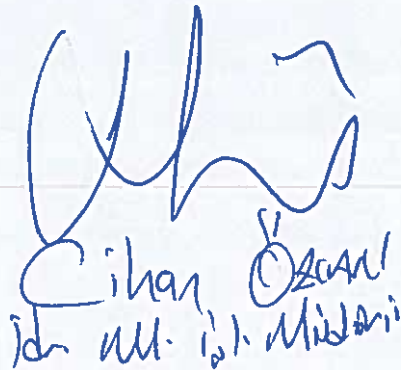 Cihan Özcan
id. Ml. işl. Müdürü